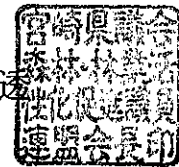 宮崎県議会
森林・林業活
性化促進議員
連盟会長印
透